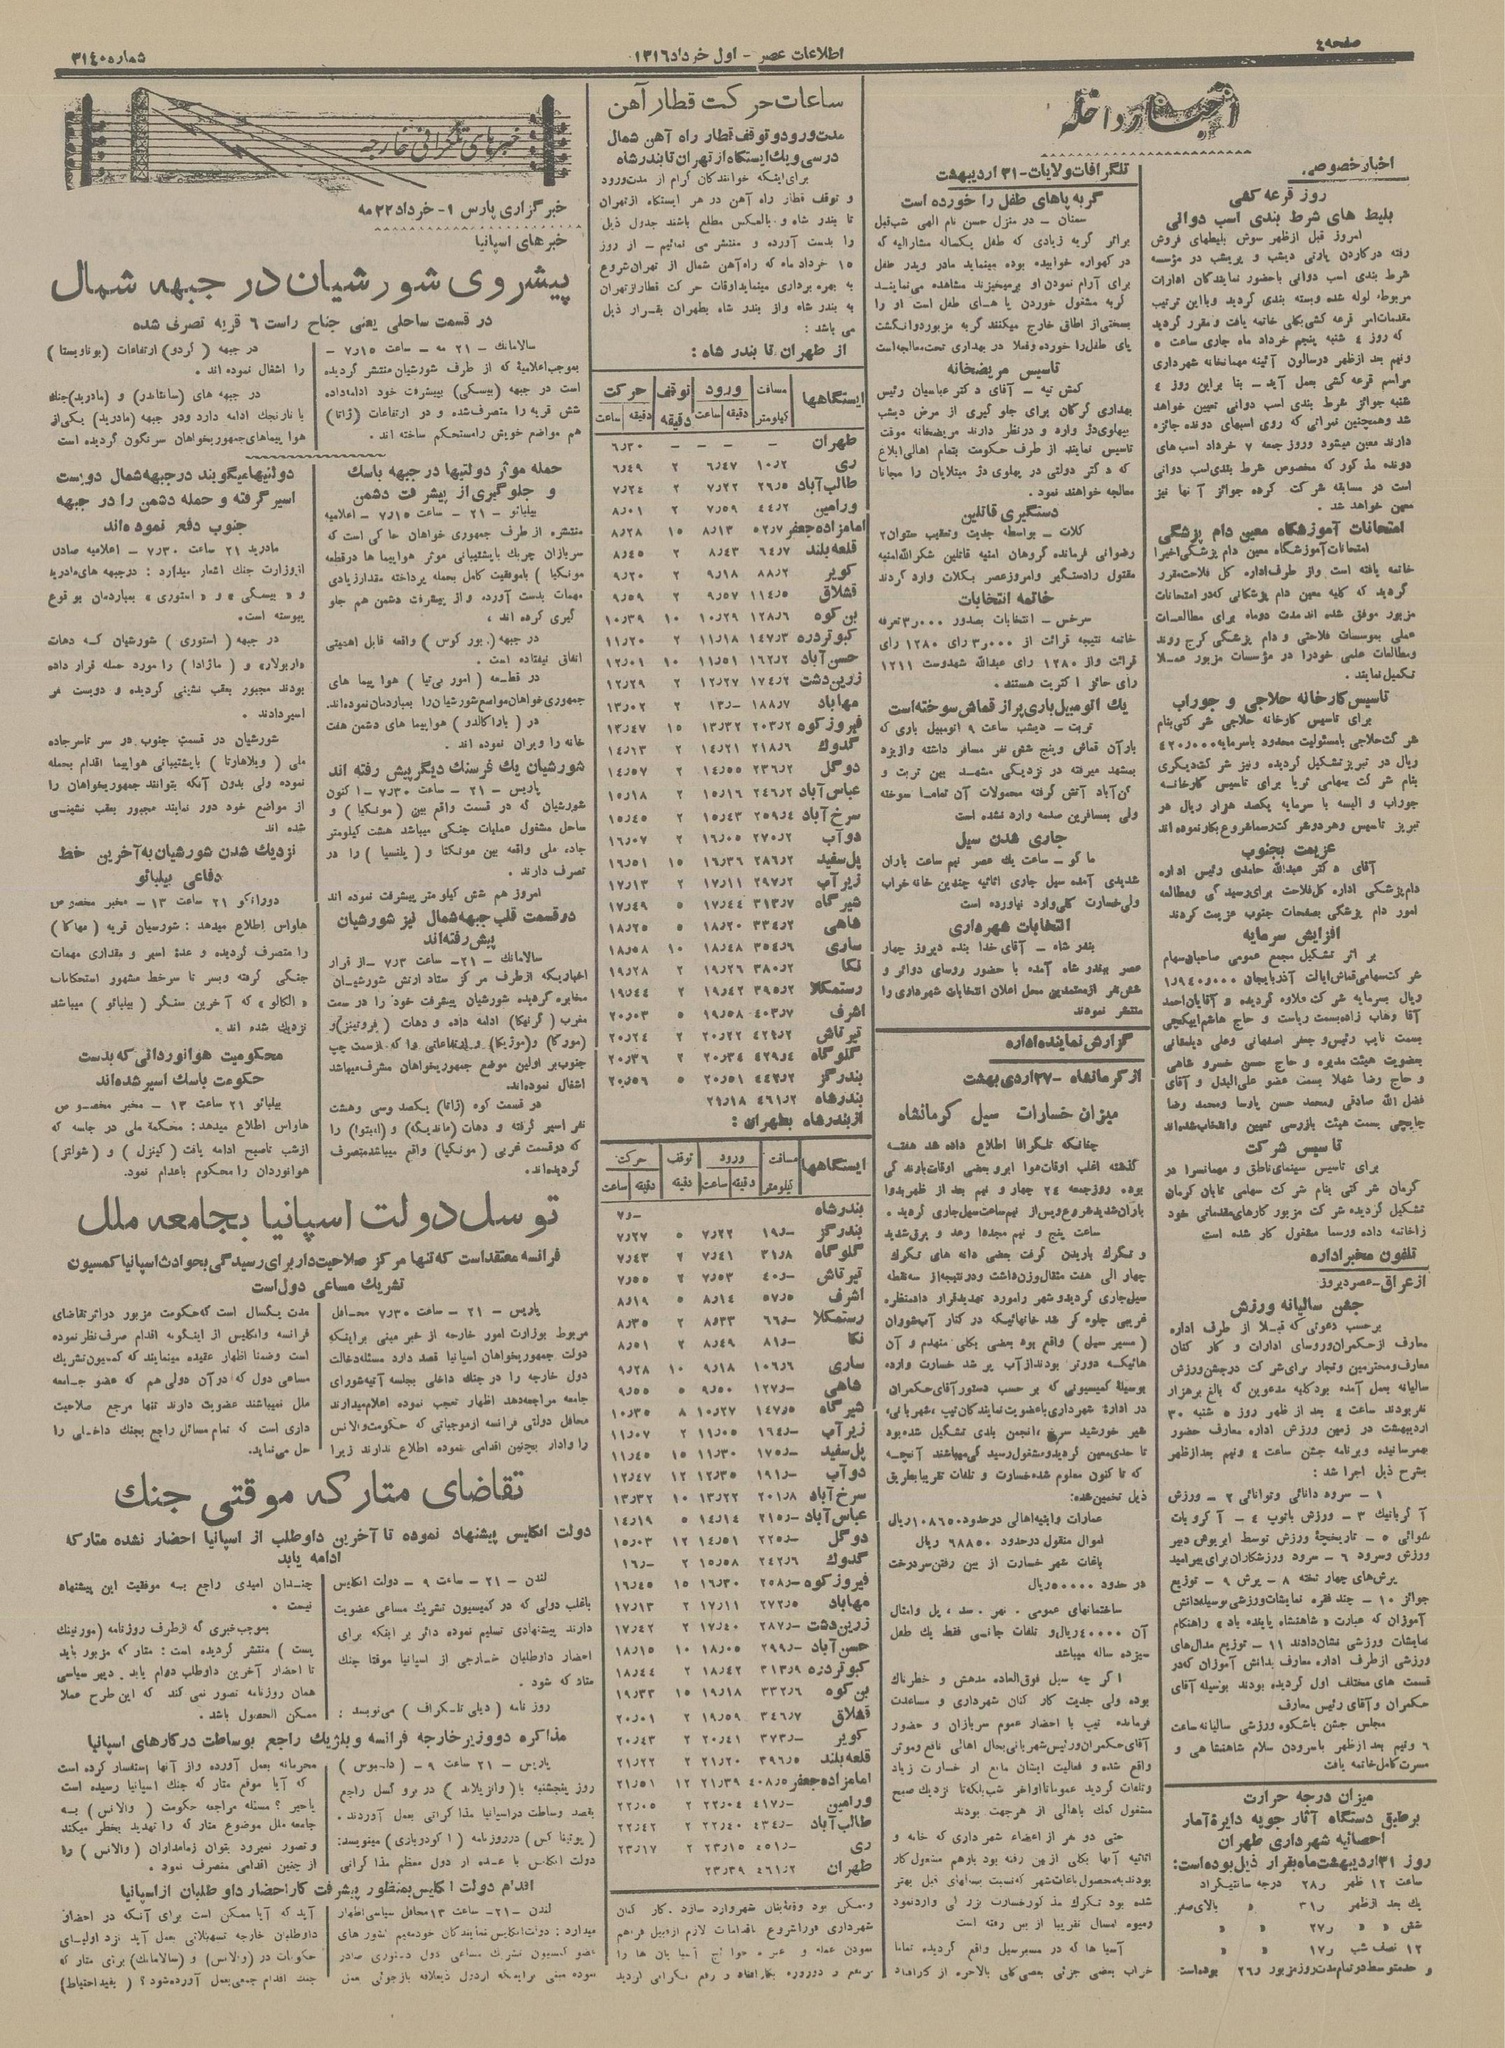 صفحه٤
اطلاعات عصر - اول خرداد ١٣١٦
شماره ٣١٤٠
اخبار داخله
اخبار خصوصی
روز قرعه کشی
بلیط های شرط بندی اسب دوانی
امروز قبل ازظهر سوش بلیطهای فروش
رفته در کاردن پارتی دیشب و پریشب در مؤسسه
شرط بندی اسب دوانی باحضور نمایندگان ادارات
مربوط، لوله شده وبسته بندی گردید وبااین ترتیب
مقدمات امر قرعه کشی بکلی خاتمه یافت و مقرر گردید
که روز ٤ شنبه پنجم خرداد ماه جاری ساعت ٥
ونیم بعد ازظهر درسالون آئینه مهمانخانه شهرداری
مراسم قرعه کشی بعمل آید - بنا براین روز ٤
شنبه جوائز شرط بندی اسب دوانی تعیین خواهد
شد وهمچنین نمراتی که روی اسبهای دونده جائزه
دارند معین میشود وروز جمعه ٧ خرداد اسب های
دونده مذکور که مخصوص شرط بندی اسب دوانی
است در مسابقه شرکت کرده جوائز آنها نیز
معین خواهد شد.
امتحانات آموزشگاه معین دام پزشگی
امتحانات آموزشگاه معین دام پزشگی اخیرا
خاتمه یافته است واز طرف اداره کل فلاحت مقرر
گردید که کلیه معین دام پزشکانی که در امتحانات
مزبور موفق شده اند مدت دوماه برای مطالعات
عملی بموسسات فلاحتی و دام پزشگی کرج روند
ومطالعات علمی خودرا در مؤسسات مزبور عملا
تکمیل نمایند.
تاسیس کارخانه حلاجی و جوراب
برای تاسیس کارخانه حلاجی شرکتی بنام
شرکت حلاجی بامسئولیت محدود باسرمایه ٤٢٠٫٠٠٠
ریال در تبریز تشکیل گردیده ونیز شرکت دیگری
بنام شرکت سهامی ثریا برای تاسیس کارخانه
جوراب و البسه با سرمایه یکصد هزار ریال در
تبریز تاسیس وهردو شرکت رسما شروع بکار نموده اند
عزیمت بجنوب
آقای دکتر عبدالله حامدی رئیس اداره
دام پزشکی اداره کل فلاحت برای رسیدگی ومطالعه
امور دام پزشگی بصفحات جنوب عزیمت کردند
افزایش سرمایه
بر اثر تشکیل مجمع عمومی صاحبان سهام
شرکت سهامی قماش ایالت آذربایجان ١٫٩٤٠٫٠٠٠
ریال بسرمایه شرکت علاوه گردیده و آقایان احمد
آقا وهاب زاده بسمت ریاست و حاج هاشم ایپکچی
بسمت نایب رئیس و جعفر اصفهانی وعلی دیلمقانی
بعضویت هیئت مدیره و حاج حسن خسرو شاهی
و حاج رضا شهلا بسمت عضو علی البدل و آقای
فضل الله صادقی ومحمد حسن پارسا ومحمد رضا
چایچی بسمت هیئت بازرسی تعیین وانتخاب شده اند
تاسیس شرکت
برای تاسیس سینمای ناطق و مهمانسرا در
کرمان شرکتی بنام شرکت سهامی تابان کرمان
تشکیل گردیده شرکت مزبور کارهای مقدماتی خود
را خاتمه داده ورسما مشغول کار شده است
تلفون مخبر اداره
از عراق - عصر دیروز
جشن سالیانه ورزش
برحسب دعوتی که قبلا از طرف اداره
معارف از حکمران وروسای ادارات و کارکنان
معارف ومحترمین وتجار برای شرکت در جشن ورزش
سالیانه بعمل آمده بود کلیه مدعوین که بالغ بر هزار
نفر بودند ساعت ٤ بعد از ظهر روز ٥ شنبه ٣٠
اردیبهشت در زمین ورزش اداره معارف حضور
بهمرسانیده وبرنامه جشن ساعت ٤ ونیم بعد ازظهر
بشرح ذیل اجرا شد:
١ - سرود دانائی وتوانائی ٢ - ورزش
٣ - ورزش باتوپ ٤ - آکروبات
ورزش وسرود ٦ - سرود ورزشکاران برای ببر امید
پرش های چهار تخته ٨ - پرش ٩ - توزیع
جوائز ١٠ - چند فقره نمایشات ورزشی بوسیله دانش
آموزان که عبارت « شاهنشاه پاینده باد » راهنگام
نمایشات ورزشی نشان دادند ١١ - توزیع مدال های
ورزشی از طرف اداره معارف بدانش آموزان که در
قسمت های مختلف اول گردیده بودند بوسیله آقای
حکمران و آقای رئیس معارف
مجلس جشن باشکوه ورزشی سالیانه ساعت
٦ ونیم بعد ازظهر باسرودن سلام شاهنشاهی و
مسرت کامل خاتمه یافت
میزان درجه حرارت
برطبق دستگاه آثار جویه دایرۀ آمار
احصائیه شهرداری طهران
روز ٣١ اردیبهشت ماه بقرار ذیل بوده است:
ساعت ١٢ ظهر ٢٨٫ درجه سانتیگراد
یک بعد ازظهر ٣١٫ « بالای صفر
شش « « ٢٧٫ « «
١٢ نصف شب ١٧٫ « «
و حد متوسط در تمام مدت روز مزبور ٢٦٫ بوده است
تلگرافات ولایات - ٣١ اردیبهشت
گربه پاهای طفل را خورده است
سمنان - در منزل حسن نام الهی شب قبل
براثر گربه زیادی که طفل یکساله مشارالیه که
در کهواره خوابیده بوده مینماید مادر وپدر طفل
برای آرام نمودن او برمیخیزند مشاهده می‌نمایند
گربه مشغول خوردن پا های طفل است او را
بسختی از اطاق خارج میکنند گربه مزبور دو انگشت
پای طفل را خورده وفعلا در بهداری تحت معالجه است
تاسیس مریضخانه
کمش تپه - آقای دکتر عباسیان رئیس
بهداری گرگان برای جلوگیری از مرض دیشب
بپهلوی دژ وارد و در نظر دارند مریضخانه موقت
تاسیس نمایند از طرف حکومت بتمام اهالی ابلاغ
که دکتر دولتی در پهلوی دژ مبتلایان را مجانا
معالجه خواهند نمود.
دستگیری قاتلین
کلات - بواسطه جدیت وتعقیب ستوان ٢
رضوانی فرمانده گروهان امنیه قاتلین شکرالله امنیه
مقتول رادستگیر وامروز عصر بکلات وارد کردند
خاتمه انتخابات
سرخس - انتخابات بصدور ٣٫٠٠٠ تعرفه
خاتمه نتیجه قرائت از ٣٫٠٠٠ رای ١٢٨٠ رای
قرائت واز ١٢٨٠ رای عبدالله شهدوست ١٢١١
رای حائز اکثریت هستند.
یك اتومبیل باری پراز قماش سوخته است
تربت - دیشب ساعت ٩ اتومبیل باری که
بارآن قماش وپنج شش نفر مسافر داشته وازیزد
بمشهد میرفته در نزدیکی مشهد بین تربت و
گن آباد آتش گرفته محمولات آن تماما سوخته
ولی بمسافرین صدمه وارد نشده است
جاری شدن سیل
ماکو - ساعت یك عصر نیم ساعت باران
شدیدی آمده سیل جاری اثاثیه چندین خانه خراب
ولی خسارت کلی وارد نیاورده است
انتخابات شهرداری
بندر شاه - آقای خدا بنده دیروز چهار
عصر ببندر شاه آمده با حضور روسای دوائر و
شش نفر از معتمدین محل اعلان انتخابات شهرداری را
منتشر نمودند
گزارش نماینده اداره
از کرمانشاه - ٢٧ اردی بهشت
میزان خسارات سیل کرمانشاه
چنانکه تلگرافا اطلاع داده شد هفته
گذشته اغلب اوقات هوا ابرو بعضی اوقات بارندگی
بوده. روز جمعه ٢٤ چهار و نیم بعد از ظهر بدوا
باران شدید شروع وپس از نیم ساعت سیل جاری گردید.
ساعت پنج و نیم مجددا رعد و برق شدید
و تگرك باریدن گرفت بعضی دانه های تگرك
چهار الی هفت مثقال وزن داشت ودر نتیجه از سه نقطه
سیل جاری گردید و شهر رامورد تهدید قرار داد منظره
غریبی جلوه گر شد خانهائیکه در کنار آب شوران
( مسیر سیل ) واقع بود بعضی بکلی منهدم و آن
هائیکه دورتر بودند از آب پر شد خسارت وارده
بوسیلۀ کمیسیونی که بر حسب دستور آقای حکمران
در ادارۀ شهرداری باعضویت نمایندگان تیپ، شهربانی،
شیر خورشید سرخ، انجمن بلدی تشکیل شده بود
تا حدی معین گردید ومشغول رسیدگی میباشند آنچه
که تا کنون معلوم شده خسارت و تلفات تقریبا بطریق
ذیل تخمین شده:
عمارات وابنیه اهالی در حدود ١٠٨٦٥٠ ریال
اموال منقول در حدود ٦٨٨٥٠ ریال
باغات شهر خسارت از بین رفتن سردرخت
در حدود ٥٠٠٠٠ ریال
ساختمانهای عمومی. نهر. سد، پل وامثال
آن ٤٠٠٠٠ ریال و تلفات جانی فقط یك طفل
سیزده ساله میباشد
اگر چه سیل فوق العاده مدهش و خطرناك
بوده ولی جدیت کارکنان شهرداری و مساعدت
فرمانده تیپ با احضار عموم سربازان و حضور
آقای حکمران ورئیس شهربانی بحال اهالی نافع وموثر
واقع شده و فعالیت ایشان مانع از خسارت زیاد
وتلفات گردید عموما تا اواخر شب بلکه تا نزدیك صبح
مشغول کمك باهالی از هرجهت بودند
حتی دو نفر از اعضاء شهرداری که خانه و
اثاثیه آنها بکلی از بین رفته بود بازهم مشغول کار
بودند به محصول باغات شهر که نسبت بسالهای قبل بهتر
شده بود تگرك مذکور خسارت بزرگی وارد نمود
ومیوه امسال تقریبا از بین رفته است
آسیا ها که در مسیر سیل واقع گردیده تماما
خراب بعضی جزئی بعضی کلی بالاخره از کار افتاد
ساعات حرکت قطار آهن
مدت ورود و توقف قطار راه آهن شمال
در سی ویك ایستگاه از تهران تا بندر شاه
برای اینکه خوانندگان گرام از مدت ورود
و توقف قطار راه آهن در هر ایستگاه از تهران
تا بندر شاه و بالعکس مطلع باشند جدول ذیل
را بدست آورده و منتشر می نمائیم - از روز
١٥ خرداد ماه که راه آهن شمال از تهران شروع
به بهره برداری مینماید اوقات حرکت قطار از تهران
به بندر شاه واز بندر شاه بطهران بقرار ذیل
می باشد:
از طهران تا بندر شاه:
ایستگاهها مسافت ورود توقف حرکت
کیلومتر دقیقه ساعت دقیقه دقیقه ساعت
طهران - - - - ٦٫٣٠
ری ١٠٫٢ ٦٫٤٧ ٢ ٦٫٤٩
طالب آباد ٢٦٫٥ ٧٫٢٢ ٢ ٧٫٢٤
ورامین ٤٤٫٢ ٧٫٥٩ ٢ ٨٫٠١
امامزاده جعفر ٥٢٫٧ ٨٫١٣ ١٥ ٨٫٢٨
قلعه بلند ٦٤٫٧ ٨٫٤٣ ٢ ٨٫٤٥
کویر ٨٨٫٢ ٩٫١٨ ٢ ٩٫٢٠
قشلاق ١١٤٫٥ ٩٫٥٧ ٢ ٩٫٥٩
بن کوه ١٢٨٫٦ ١٠٫٢٩ ١٠ ١٠٫٣٩
کبوتر دره ١٤٧٫٣ ١١٫١٨ ٢ ١١٫٢٠
حسن آباد ١٦٢٫٢ ١١٫٥١ ١٠ ١٢٫٠١
زرین دشت ١٧٤٫٢ ١٢٫٢٧ ٢ ١٢٫٢٩
مهاباد ١٨٨٫٧ ١٣٫- ٢ ١٣٫٠٢
فیروز کوه ٢٠٣٫٢ ١٣٫٣٢ ١٥ ١٣٫٤٧
گدوك ٢١٨٫٦ ١٤٫٢١ ٢ ١٤٫١٣
دوگل ٢٣٦٫٢ ١٤٫٥٥ ٢ ١٤٫٥٧
عباس آباد ٢٤٦٫٢ ١٥٫١٦ ٢ ١٥٫١٨
سرخ آباد ٢٥٩٫٤ ١٥٫٤٣ ٢ ١٥٫٤٥
دوآب ٢٧٠٫٢ ١٦٫٠٥ ٢ ١٦٫٠٧
پل سفید ٢٨٦٫٢ ١٦٫٣٦ ١٥ ١٦٫٥١
زیرآب ٢٩٧٫٢ ١٧٫١١ ٢ ١٧٫١٣
شیرگاه ٣١٣٫٧ ١٧٫٤٤ ٥ ١٧٫٤٩
شاهی ٣٣٤٫٢ ١٨٫٢٠ ٥ ١٨٫٢٥
ساری ٣٥٤٫٦ ١٨٫٤٨ ١٠ ١٨٫٥٨
نکا ٣٨٠٫٢ ١٩٫٢٦ ٢ ١٩٫٢٨
رستمکلا ٣٩٥٫٢ ١٩٫٤٢ ٢ ١٩٫٤٤
اشرف ٤٠٣٫٧ ١٩٫٥٨ ٥ ٢٠٫٠٣
تیرتاش ٤٢١٫٢ ٢٠٫٢٢ ٢ ٢٠٫٢٤
گلوگاه ٤٢٩٫٤ ٢٠٫٣٤ ٢ ٢٠٫٣٦
بندرگز ٤٤٢٫٢ ٢٠٫٥١ ٥ ٢٠٫٥٦
بندرشاه ٤٦١٫٢ ٢١٫١٨
از بندر شاه بطهران:
ایستگاهها مسافت ورود توقف حرکت
کیلومتر دقیقه ساعت دقیقه دقیقه ساعت
بندرشاه ٧٫-
بندرگز ١٩٫- ٧٫٢٢ ٥ ٧٫٢٧
گلوگاه ٣١٫٨ ٧٫٤١ ٢ ٧٫٤٣
تیرتاش ٤٠٫- ٧٫٥٣ ٢ ٧٫٥٥
اشرف ٥٧٫٥ ٨٫١٤ ٥ ٨٫١٩
رستمکلا ٦٦٫- ٨٫٣٣ ٢ ٨٫٣٥
نکا ٨١٫- ٨٫٤٩ ٢ ٨٫٥١
ساری ١٠٦٫٦ ٩٫١٨ ١٠ ٩٫٢٨
شاهی ١٢٧٫- ٩٫٥٠ ٥ ٩٫٥٥
شیرگاه ١٤٧٫٥ ١٠٫٢٧ ٨ ١٠٫٣٥
زیرآب ١٦٤٫- ١١٫٠٥ ٢ ١١٫٠٧
پل سفید ١٧٥٫- ١١٫٣٠ ١٥ ١١٫٤٥
دوآب ١٩١٫- ١٢٫٣٥ ١٢ ١٢٫٤٧
سرخ آباد ٢٠١٫٨ ١٣٫٢٢ ١٠ ١٣٫٣٢
عباس آباد ٢١٥٫- ١٤٫١٤ ٥ ١٤٫١٩
دوگل ٢٢٥٫- ١٤٫٥١ ١٢ ١٥٫٠٣
گدوك ٢٤٢٫٦ ١٥٫٥٨ ٢ ١٦٫-
فیروز کوه ٢٥٨٫- ١٦٫٣٠ ١٥ ١٦٫٤٥
مهاباد ٢٧٢٫٥ ١٧٫١١ ٢ ١٧٫١٣
زرین دشت ٢٨٧٫- ١٧٫٤٠ ٢ ١٧٫٤٢
حسن آباد ٢٩٩٫- ١٨٫٠٥ ١٠ ١٨٫١٥
کبوتر دره ٣١٣٫٩ ١٨٫٤٢ ٢ ١٨٫٤٤
بن کوه ٣٣٢٫٦ ١٩٫١٨ ١٥ ١٩٫٣٣
قشلاق ٣٤٦٫٧ ١٩٫٥٩ ٢ ٢٠٫٠١
کویر ٣٧٣٫- ٢٠٫٤١ ٢ ٢٠٫٤٣
قلعه بلند ٣٩٦٫٥ ٢١٫٢٠ ٢ ٢١٫٢٢
امامزاده جعفر ٤٠٨٫٥ ٢١٫٣٩ ١٢ ٢١٫٥١
ورامین ٤١٧٫- ٢٢٫٠٤ ٢ ٢٢٫٠٥
طالب آباد ٤٣٤٫- ٢٢٫٤٠ ٢ ٢٢٫٤٢
ری ٤٥١٫- ٢٣٫١٥ ٢ ٢٣٫١٧
طهران ٤٦١٫٢ ٢٣٫٣٩
وممکن بود وقفه بنان شهر وارد سازد. کارکنان
شهرداری فورا شروع باقدامات لازم از قبیل فراهم
نمودن عمله و غیره حوائج آسیابان ها را
مرتفع و دوروزه بکار افتاد و رفع نگرانی گردید
خبرهای تلگرافی خارجه
خبرگزاری پارس ١- خرداد ٢٢ مه
خبرهای اسپانیا
پیشروی شورشیان در جبهه شمال
در قسمت ساحلی یعنی جناح راست ٦ قریه تصرف شده
سالامانك - ٢١ مه - ساعت ٧٫١٥ -
بموجب اعلامیۀ که از طرف شورشیان منتشر گردیده
است در جبهه (بیسکی) بپیشرفت خود ادامه داده
شش قریه را متصرف شده و در ارتفاعات (ژاتا)
هم مواضع خویش رامستحکم ساخته اند.
در جبهه ( گردو) ارتفاعات (بوناویستا)
را اشغال نموده اند.
در جبهه های (سانتاندر) و (مادرید) جنك
با نارنجك ادامه دارد ودر جبهه (مادرید) یکی از
هوا پیماهای جمهوریخواهان سرنگون گردیده است
حمله موثر دولتیها در جبهه باسك
و جلوگیری از پیشرفت دشمن
بیلبائو - ٢١ - ساعت ٧٫١٥ - اعلامیه
منتشره از طرف جمهوری خواهان حاکی است که
سربازان چریك باپشتیبانی موثر هواپیما ها در قطعه
مونکیا ) باموفقیت کامل بحمله پرداخته مقدار زیادی
مهمات بدست آورده و از پیشرفت دشمن هم جلو
گیری کرده اند.
در جبهه (. بور کوس ) واقعه قابل اهمیتی
اتفاق نیفتاده است.
در قطعه ( امور بی تیا ) هوا پیما های
جمهوری خواهان مواضع شورشیان را بمباردمان نموده اند.
در ( باراکالدو ) هواپیما های دشمن هفت
خانه را ویران نموده اند.
شورشیان یك فرسنك دیگر پیش رفته اند
پاریس - ٢١ - ساعت ٧٫٣٠ - اکنون
شورشیان که در قسمت واقع بین ( مونکیا ) و
ساحل مشغول عملیات جنگی میباشند هشت کیلومتر
جاده ملی واقعه بین مونکتا و ( پلنسیا ) را در
تصرف دارند.
امروز هم شش کیلو متر پیشرفت نموده اند
در قسمت قلب جبهه شمال نیز شورشیان
پیش رفته اند
سالامانك - ٢١ - ساعت ٧٫٣ - از قرار
اخباریکه از طرف مرکز ستاد ارتش شورشیان
مخابره گردیده شورشیان پیشرفت خود را در سمت
مغرب (گرنیکا) ادامه داده و دهات ( فروتینز) و
(مورکا) و (موزیکا) و ارتفاعاتی را که از سمت چپ
جنوب بر اولین موضع جمهوریخواهان مشرف میباشد
اشغال نموده اند.
در قسمت کوه (ژاتا) یکصد وسی وهشت
نفر اسیر گرفته و دهات (ماندیکه) و (اهبتوا) را
که در قسمت غربی (مونکیا) واقع میباشد متصرف
گردیده اند.
دولتیها میگویند در جبهه شمال دویست
اسیر گرفته و حمله دشمن را در جبهه
جنوب دفع نموده اند
مادرید ٢١ ساعت ٧٫٣٠ - اعلامیه صادره
از وزارت جنك اشعار میدارد: در جبهه های مادرید
و « بیسکی » و « استوری » بمباردمان بوقوع
پیوسته است.
در جبهه ( استوری ) شورشیان که دهات
«اربولار» و ( مازادا ) را مورد حمله قرار داده
بودند مجبور بعقب نشینی گردیده و دویست نفر
اسیر دادند.
شورشیان در قسمت جنوب در سر تاسر جاده
ملی ( ویلاهارتا ) باپشتیبانی هواپیما اقدام بحمله
نموده ولی بدون آنکه بتوانند جمهوریخواهان را
از مواضع خود دور نمایند مجبور بعقب نشینی
شده اند
نزدیك شدن شورشیان به آخرین خط
دفاعی بیلبائو
دورانکو ٢١ ساعت ١٣ - مخبر مخصوص
هاواس اطلاع میدهد: شورسیان قریه ( مهاکا )
را متصرف گردیده و عدۀ اسیر و مقداری مهمات
جنگی گرفته وپسر تا سرخط مشهور استحکامات
« الکالو » که آخرین سنگر ( بیلبائو ) میباشد
نزدیك شده اند.
محکومیت هوانوردانی که بدست
حکومت باسك اسیر شده اند
بیلبائو ٢١ ساعت ١٣ - مخبر مخصوص
هاواس اطلاع میدهد: محکمۀ ملی در جلسه که
ازشب تا صبح ادامه یافت ( کینزل ) و ( شولتز )
هوانوردان را محکوم باعدام نمود.
توسل دولت اسپانیا بجامعه ملل
فرانسه معتقد است که تنها مرکز صلاحیت دار برای رسیدگی بحوادث اسپانیا کمسیون
تشریك مساعی دول است
پاریس - ٢١ - ساعت ٧٫٣٠ محافل
مربوط بوزارت امور خارجه از خبر مبنی براینکه
دولت جمهوریخواهان اسپانیا قصد دارد مسئله دخالت
دول خارجه را در جنك داخلی بجلسه آتیه شورای
جامعه مراجعه دهد اظهار تعجب نموده اعلام میدارند
محافل دولتی فرانسه از موجباتی که حکومت والانس
را وادار بچنین اقدامی نموده اطلاع ندارند زیرا
مدت یکسال است که حکومت مزبور در اثر تقاضای
فرانسه وانگلیس از اینگونه اقدام صرف نظر نموده
است وضمنا اظهار عقیده مینمایند که کمیسیون تشریك
مساعی دول که در آن دولی هم که عضو جامعه
ملل نمیباشند عضویت دارند تنها مرجع صلاحیت
داری است که تمام مسائل راجع بجنك داخلی را
حل می نماید.
تقاضای متارکه موقتی جنك
دولت انگلیس پیشنهاد نموده تا آخرین داوطلب از اسپانیا احضار نشده متارکه
ادامه یابد
لندن - ٢١ - ساعت ٩ - دولت انگلیس
باغلب دولی که در کمیسیون تشریك مساعی عضویت
دارند پیشنهادی تسلیم نموده دائر بر اینکه برای
احضار داوطلبان خارجی از اسپانیا موقتا جنك
متارکه شود.
روز نامه ( دیلی تلگراف ) می نویسد:
چندان امیدی راجع به موفقیت این پیشنهاد
نیست.
بموجب خبری که از طرف روزنامه (مورنینك
پست ) منتشر گردیده است: متارکه مزبور باید
تا احضار آخرین داوطلب دوام یابد. دبیر سیاسی
همان روزنامه تصور نمی کند که این طرح عملا
ممکن الحصول باشد.
مذاکره دو وزیر خارجه فرانسه و بلژیك راجع بوساطت در کارهای اسپانیا
پاریس - ٢١ ساعت ٩ - (دلبوس )
روز پنجشنبه با ( وانزیلاند ) در برو گسل راجع
بقصد وساطت در اسپانیا مذاکراتی بعمل آوردند.
( پوتینا کس ) در روزنامه ( اکودوپاری) مینویسد:
دولت انگلیس با عده از دول معظم مذاکراتی
محرمانه بعمل آورده واز آنها استفسار کرده است
که آیا موقع متارکه جنك اسپانیا رسیده است
یاخیر؟ مسئله مراجعه حکومت ( والانس ) به
جامعه ملل موضوع متارکه را تهدید بخطر میکند
و تصور نمیرود بتوان زمامداران ( والانس ) را
از چنین اقدامی منصرف نمود.
اقدام دولت انگلیس بمنظور پیشرفت کار احضار داوطلبان از اسپانیا
لندن - ٢١ - ساعت ١٣ محافل سیاسی اظهار
میدارد: دولت انگلیس نمایندگان خود مقیم کشورهای
عضو کمیسیون تشریك مساعی دول دستوری صادر
نموده مبنی براینکه از دول ذیعلاقه بازجوئی بعمل
آید که آیا ممکن است برای آنکه در احضار
داوطلبان خارجه تسهیلاتی بعمل آید نزد اولیای
حکومات در (والانس) و (سالامانك) برای متارکه
جنك اقدام جمعی بعمل آورده شود؟ ( بقید احتیاط)